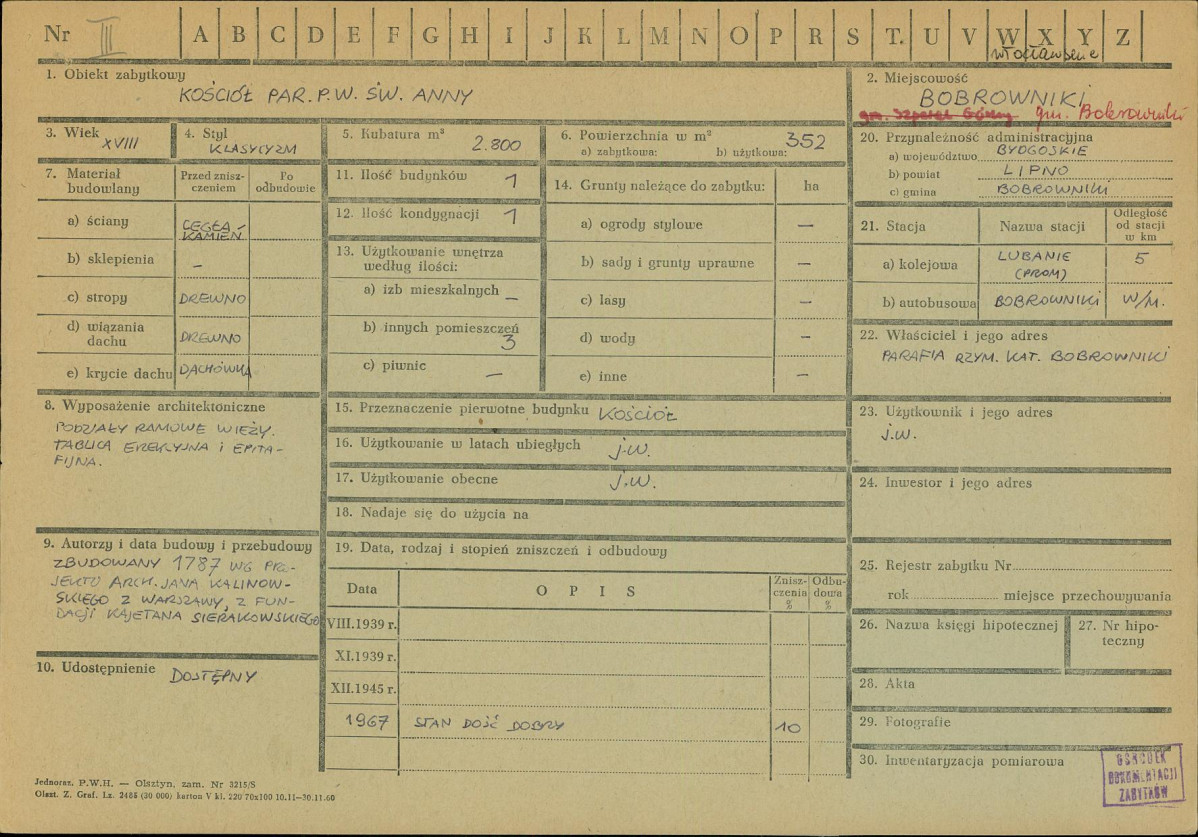 Nr III A B C D E F G H I J K L M N O P R S T. U V W X Y Z
włocławskie
1. Obiekt zabytkowy
KOŚCIÓŁ PAR. P.W. ŚW. ANNY
2. Miejscowość
BOBROWNIKI
gm. Szpetal Górny gm. Bobrowniki
3. Wiek
XVIII
4. Styl
KLASYCYZM
5. Kubatura m³
2.800
6. Powierzchnia w m²
a) zabytkowa: b) użytkowa: 352
7. Materiał
budowlany
Przed znisz-
czeniem
Po
odbudowie
a) ściany
CEGŁA
KAMIEŃ
b) sklepienia
–
c) stropy DREWNO
d) wiązania
dachu
DREWNO
e) krycie dachu DACHÓWKA
8. Wyposażenie architektoniczne
PODZIAŁY RAMOWE WIEŻY.
TABLICA EREKCYJNA I EPITA-
FIJNA.
9. Autorzy i data budowy i przebudowy
ZBUDOWANY 1787 WG PRO-
JEKTU ARCH. JANA KALINOW-
SKIEGO Z WARSZAWY, Z FUN-
DACJI KAJETANA SIERAKOWSKIEGO
10. Udostępnienie DOSTĘPNY
11. Ilość budynków 1
12. Ilość kondygnacji 1
13. Użytkowanie wnętrza
według ilości:
a) izb mieszkalnych –
b) innych pomieszczeń
3
c) piwnic –
14. Grunty należące do zabytku: ha
a) ogrody stylowe –
b) sady i grunty uprawne –
c) lasy –
d) wody –
e) inne –
15. Przeznaczenie pierwotne budynku KOŚCIÓŁ
16. Użytkowanie w latach ubiegłych j.w.
17. Użytkowanie obecne j.w.
18. Nadaje się do użycia na
19. Data, rodzaj i stopień zniszczeń i odbudowy
Data O P I S
Znisz-
czenia
%
Odbu-
dowa
%
VIII.1939 r.
XI.1939 r.
XII.1945 r.
1967 STAN DOŚĆ DOBRY 10
20. Przynależność administracyjna
a) województwo BYDGOSKIE
b) powiat LIPNO
c) gmina BOBROWNIKI
21. Stacja Nazwa stacji
Odległość
od stacji
w km
a) kolejowa LUBANIE
(PROM)
5
b) autobusowa BOBROWNIKI W/M.
22. Właściciel i jego adres
PARAFIA RZYM. KAT. BOBROWNIKI
23. Użytkownik i jego adres
j.w.
24. Inwestor i jego adres
25. Rejestr zabytku Nr
rok miejsce przechowywania
26. Nazwa księgi hipotecznej
27. Nr hipo-
teczny
28. Akta
29. Fotografie
30. Inwentaryzacja pomiarowa
OŚRODEK
DOKUMENTACJI
ZABYTKÓW
Jednoraz. P.W.H. — Olsztyn, zam. Nr 3215/S
Olszt. Z. Graf. Lz. 2488 (30 000) karton V kl. 220 70x100 10.11—30.11.60